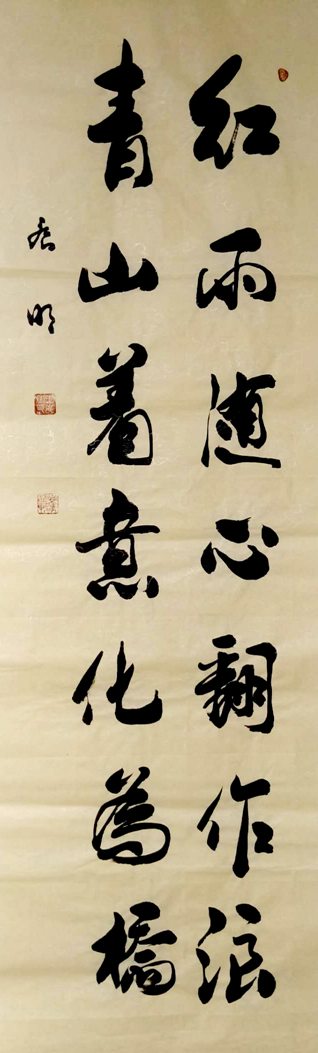 红雨随心翻作浪
青山着意化為橋